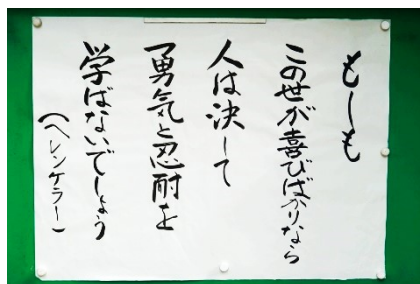 もしも
この世が喜びばかりなら
人は決して
勇気と忍耐を
学ばないでしょう
(ヘレンケラー)